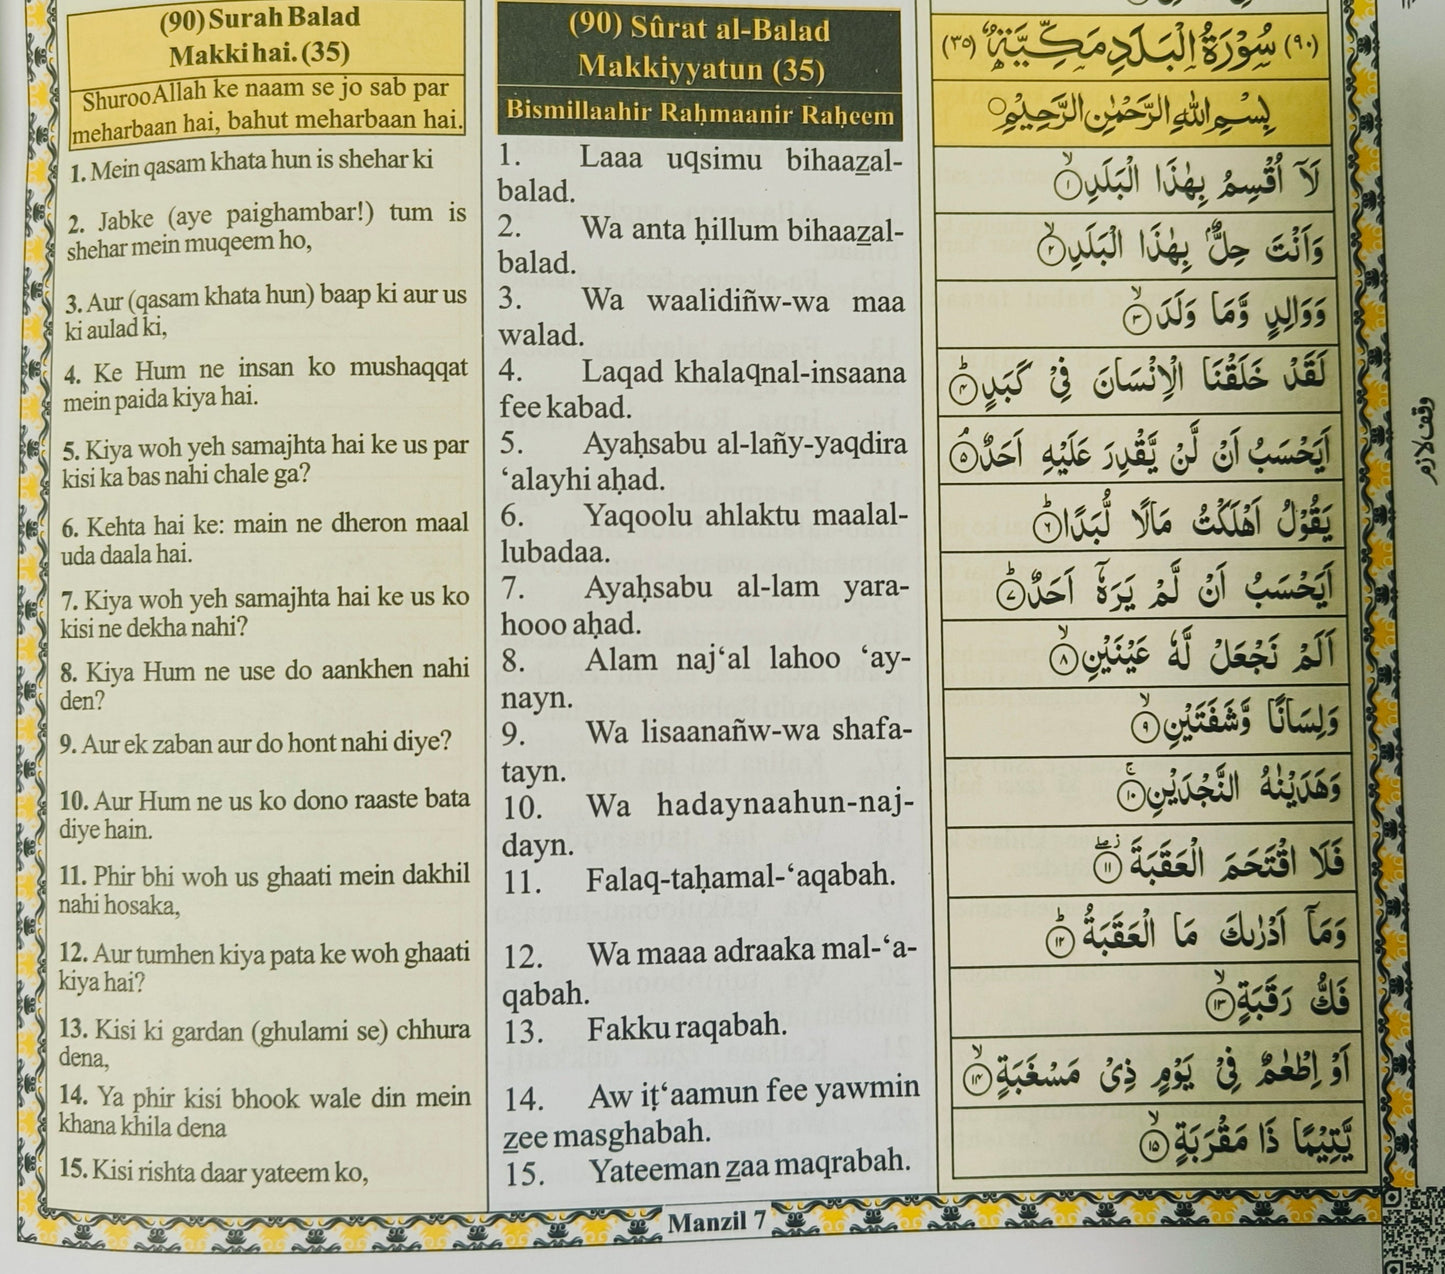 (90) Surah Balad
Makki hai. (35)
Shuroo Allah ke naam se jo sab par
meharbaan hai, bahut meharbaan hai.
1. Mein qasam khata hun is shehar ki
2. Jabke (aye paighambar!) tum is
shehar mein muqeem ho,
3. Aur (qasam khata hun) baap ki aur us
ki aulad ki,
4. Ke Hum ne insan ko mushaqqat
mein paida kiya hai.
5. Kiya woh yeh samajhta hai ke us par
kisi ka bas nahi chale ga?
6. Kehta hai ke: main ne dheron maal
uda daala hai.
7. Kiya woh yeh samajhta hai ke us ko
kisi ne dekha nahi?
8. Kiya Hum ne use do aankhen nahi
den?
9. Aur ek zaban aur do hont nahi diye?
10. Aur Hum ne us ko dono raaste bata
diye hain.
11. Phir bhi woh us ghaati mein dakhil
nahi hosaka,
12. Aur tumhen kiya pata ke woh ghaati
kiya hai?
13. Kisi ki gardan (ghulami se) chhura
dena,
14. Ya phir kisi bhook wale din mein
khana khila dena
15. Kisi rishta daar yateem ko,
(90) Sûrat al-Balad
Makkiyyatun (35)
Bismillaahir Raḥmaanir Raḥeem
1. Laaa uqsimu bihaazal-
balad.
2. Wa anta ḥillum bihaazal-
balad.
3. Wa waalidiñw-wa maa
walad.
4. Laqad khalaqnal-insaana
fee kabad.
5. Ayaḥsabu al-lañy-yaqdira
‘alayhi aḥad.
6. Yaqoolu ahlaktu maalal-
lubadaa.
7. Ayaḥsabu al-lam yara-
hooo aḥad.
8. Alam naj‘al lahoo ‘ay-
nayn.
9. Wa lisaanañw-wa shafa-
tayn.
10. Wa hadaynaahun-naj-
dayn.
11. Falaq-taḥamal-‘aqabah.
12. Wa maaa adraaka mal-‘a-
qabah.
13. Fakku raqabah.
14. Aw iṭ‘aamun fee yawmin
zee masghabah.
15. Yateeman zaa maqrabah.
(٩٠) سُوْرَةُ الْبَلَدِ مَكِّيَّةٌ (٣٥)
بِسْمِ اللّٰهِ الرَّحْمٰنِ الرَّحِيْمِ
لَاۤ اُقْسِمُ بِهٰذَا الْبَلَدِ ۙ ١
وَاَنْتَ حِلٌّۢ بِهٰذَا الْبَلَدِ ۙ ٢
وَوَالِدٍ وَّمَا وَلَدَ ۙ ٣
لَقَدْ خَلَقْنَا الْاِنْسَانَ فِيْ كَبَدٍ ؕ ٤
اَيَحْسَبُ اَنْ لَّنْ يَّقْدِرَ عَلَيْهِ اَحَدٌ ۘ ٥
يَقُوْلُ اَهْلَكْتُ مَالًا لُّبَدًا ؕ ٦
اَيَحْسَبُ اَنْ لَّمْ يَرَهٗۤ اَحَدٌ ؕ ٧
اَلَمْ نَجْعَلْ لَّهٗ عَيْنَيْنِ ۙ ٨
وَلِسَانًا وَّشَفَتَيْنِ ۙ ٩
وَهَدَيْنٰهُ النَّجْدَيْنِ ۚ ١٠
فَلَا اقْتَحَمَ الْعَقَبَةَ ١١
وَمَاۤ اَدْرٰىكَ مَا الْعَقَبَةُ ؕ ١٢
فَكُّ رَقَبَةٍ ۙ ١٣
اَوْ اِطْعٰمٌ فِيْ يَوْمٍ ذِيْ مَسْغَبَةٍ ۙ ١٤
يَّتِيْمًا ذَا مَقْرَبَةٍ ۙ ١٥
وقف لازم
Manzil 7